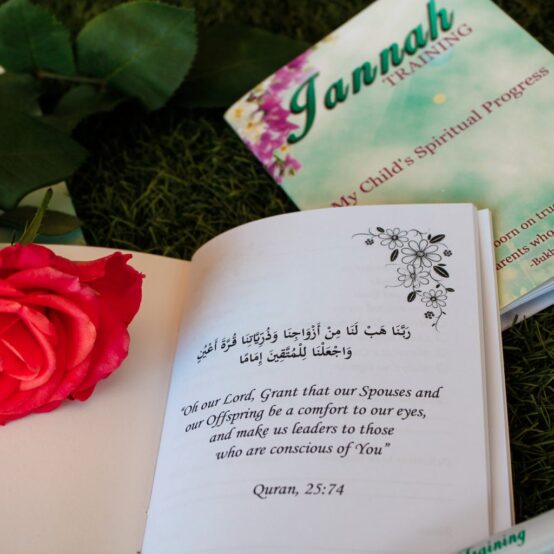 Jannah
TRAINING
My Child's Spiritual Progress
born on tru
arents who
-Bukh
رَبَّنَا هَبْ لَنَا مِنْ أَزْوَاجِنَا وَذُرِّيَّاتِنَا قُرَّةَ أَعْيُنٍ
وَاجْعَلْنَا لِلْمُتَّقِينَ إِمَامًا
"Oh our Lord, Grant that our Spouses and
our Offspring be a comfort to our eyes,
and make us leaders to those
who are conscious of You"
Quran, 25:74
Training